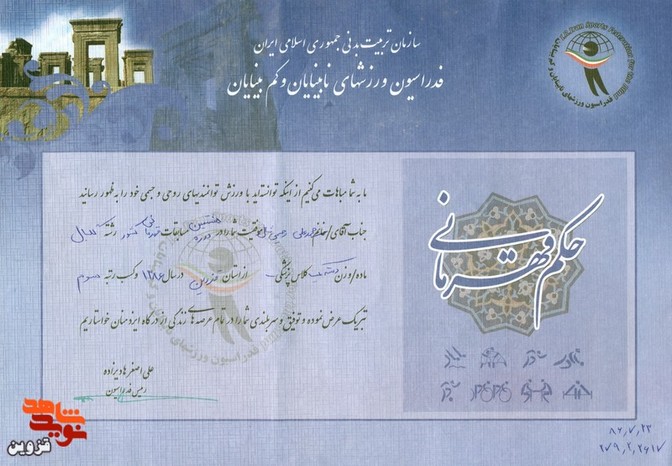 سازمان تربیت بدنی جمهوری اسلامی ایران
فدراسیون ورزشهای نابینایان و کم بینایان
حکم قهرمانی
ما به شما مباهات می‌کنیم از اینکه توانسته‌اید با ورزش توانمندیهای روحی و جسمی خود را به ظهور رسانید
جناب آقای/خانم موفقیت شما را در دوره هشتمین مسابقات قهرمانی کشور رشته گلبال
ماده/وزن کلاس پزشکی - از استان قزوین در سال ۱۳۸۶ و کسب رتبه سوم
تبریک عرض نموده و توفیق و سربلندی شما را در تمام عرصه های زندگی از درگاه ایزد منان خواستاریم
علی اصغر هادیزاده
رئیس فدراسیون
۸۶,۷,۲۳
۲۷۹,۲,۲۶۱۷
نوید شاهد
قزوین